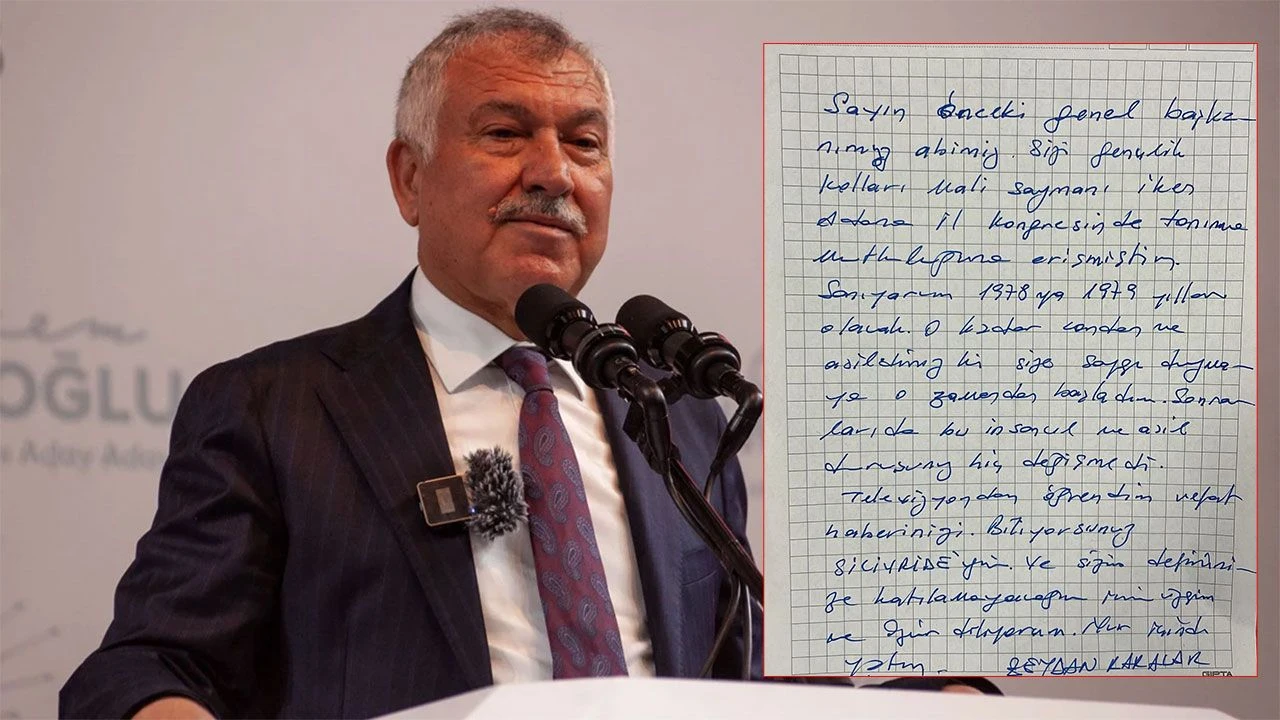 em
OĞLU
Aday Ada
Sayın önceki genel başka-
nımız abimiz. Sizi gençlik
kolları mali saymanı iken
Adana il kongresinde tanıma
mutluluğuna erişmiştim.
Sanıyorum 1978 ya 1979 yılları
olacak. O kadar candan ve
asildiniz ki size saygı duyma-
ya o zamandan başladım. Sonra-
ları da bu insancıl ve asil
duruşunuz hiç değişmedi.
Televizyondan öğrendim vefat
haberinizi. Biliyorsunuz
SİLİVRİDE'yim. Ve sizin defnini-
ze katılamayacağım için üzgün
ve özür diliyorum. Nur içinde
yatın. ZEYDAN KARALAR
GIPTA